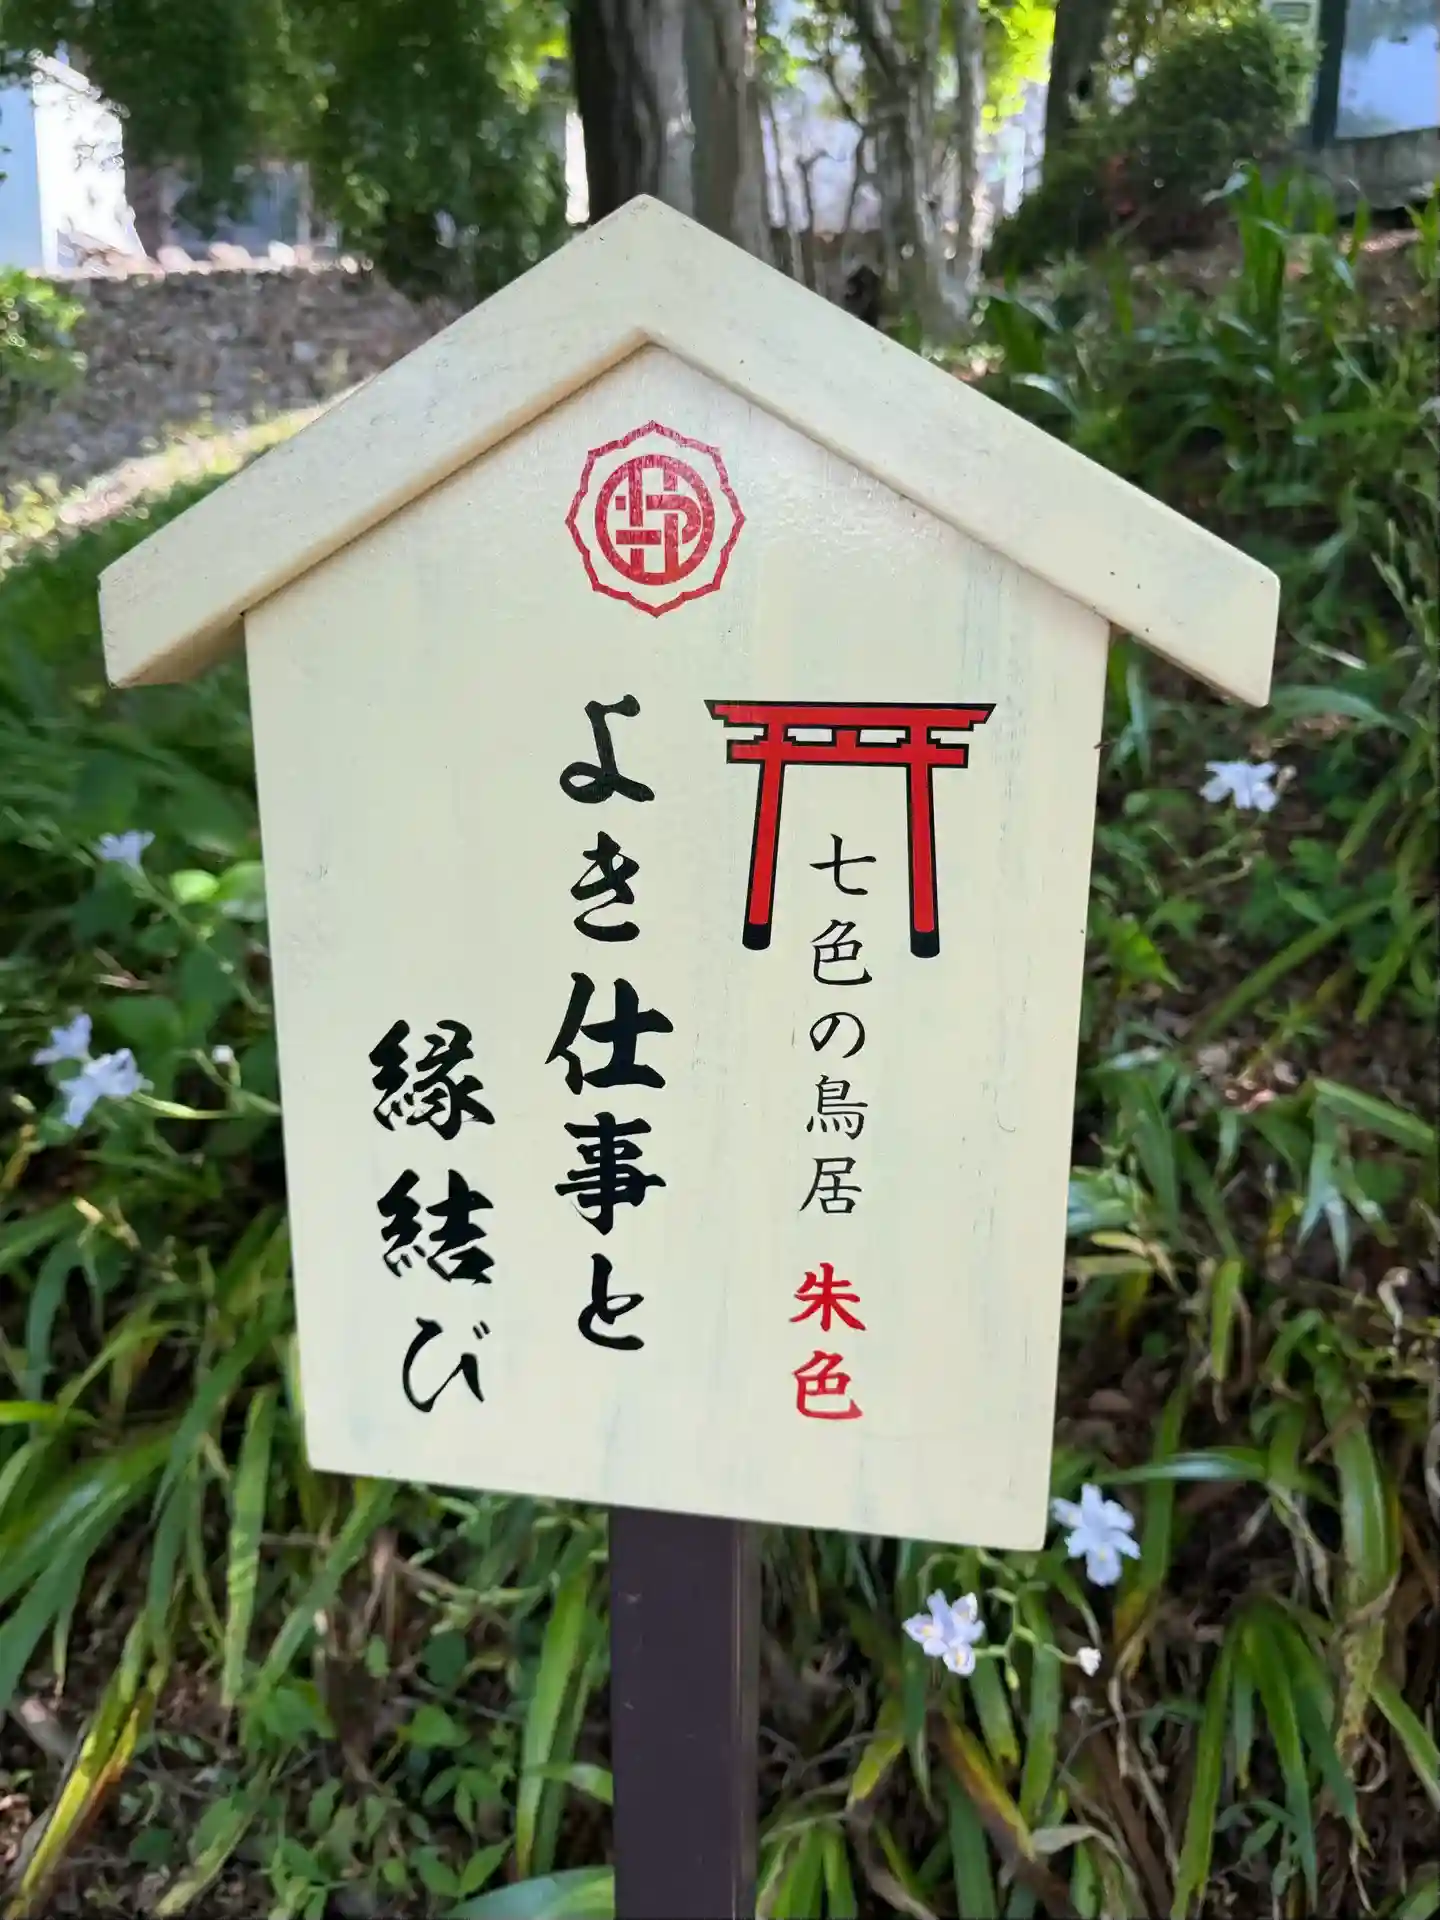 七色の鳥居 朱色
よき仕事と
縁結び